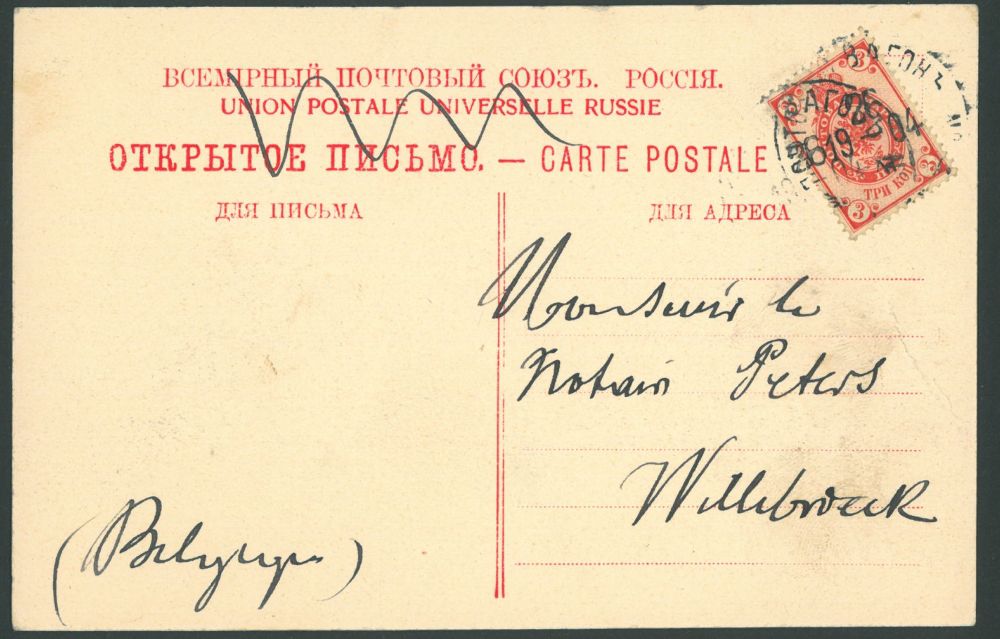 ВСЕМІРНЫЙ ПОЧТОВЫЙ СОЮЗЪ. РОССІЯ.
UNION POSTALE UNIVERSELLE RUSSIE
ОТКРЫТОЕ ПИСЬМО. — CARTE POSTALE
ДЛЯ ПИСЬМА
ДЛЯ АДРЕСА
3
3
3
ТРИ КОП
3
19
04
Monsieur le
Notair Peters
Willebroeck
(Belgique)